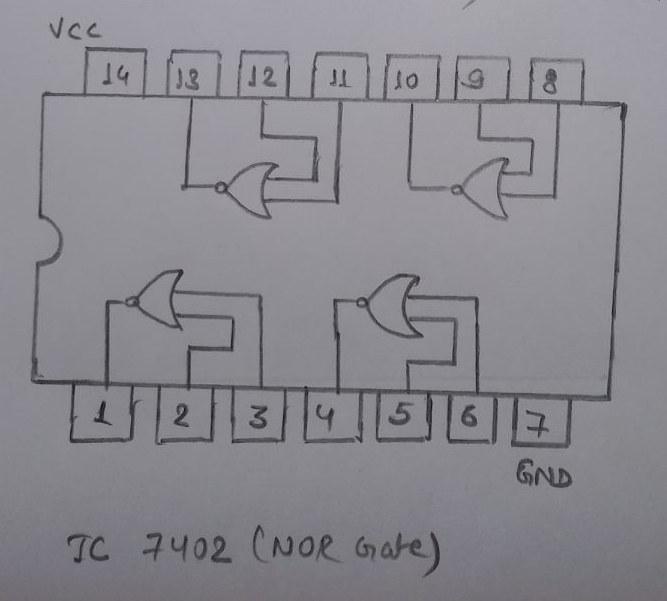 VCC
14 13 12 11 10 9 8
1 2 3 4 5 6 7
GND
IC 7402 (NOR Gate)